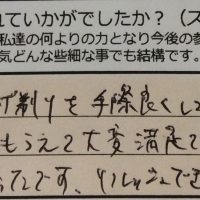 れていかがでしたか？（ス
私達の何よりの力となり今後の参
気どんな些細な事でも結構です。
げ剃りを手際良くし
もらえて大変満足で
ったです、リルッシュでき